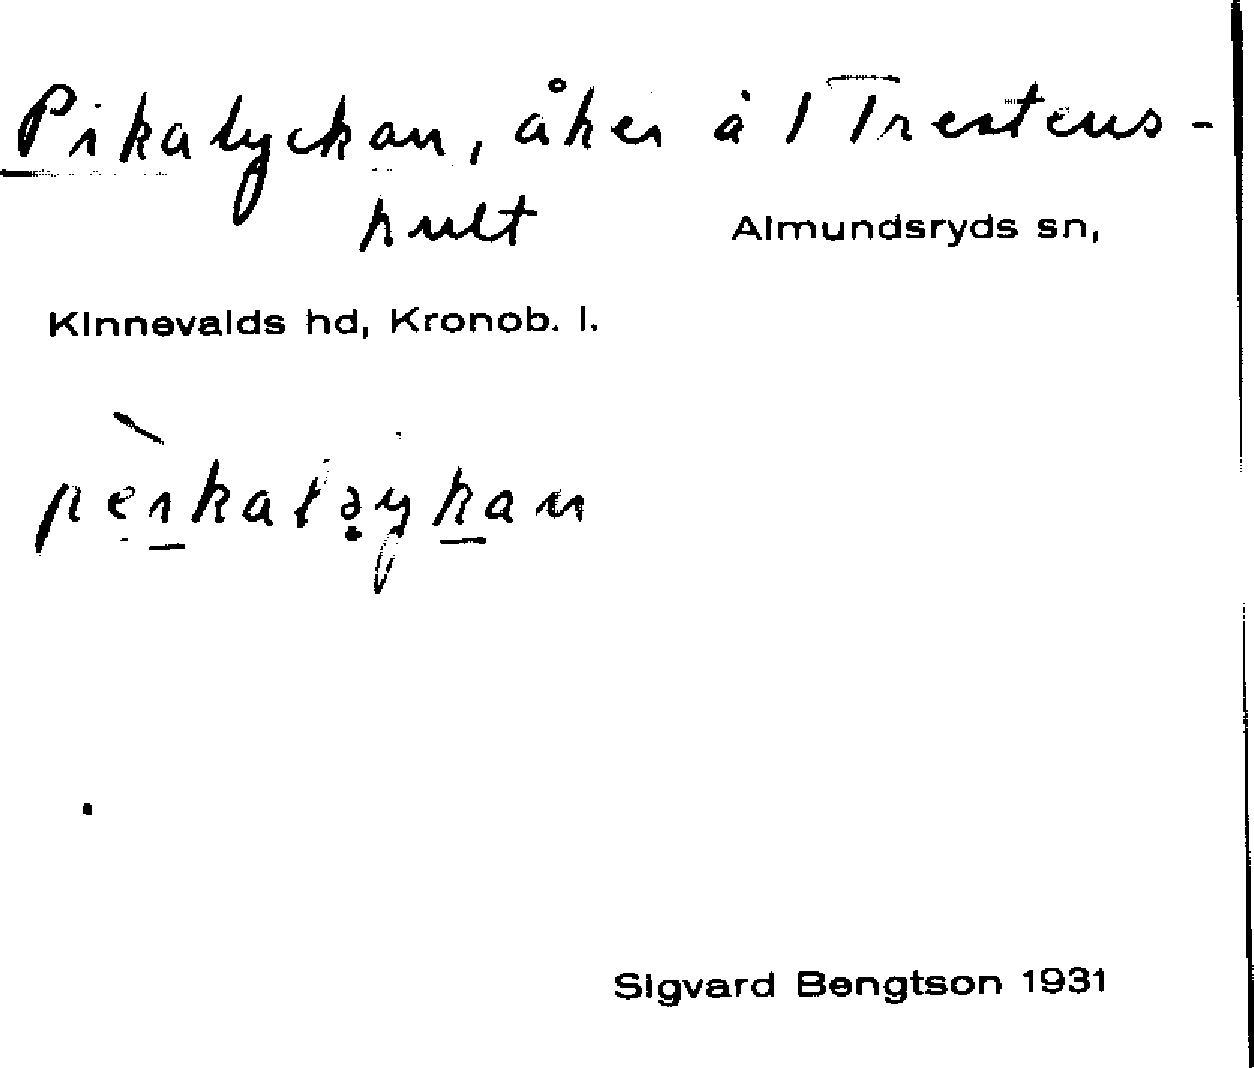 Pikalyckan, åker å 1 Trestens-
hult
Almundsryds sn,
Kinnevalds hd, Kronob. l.
Sigvard Bengtson 1931